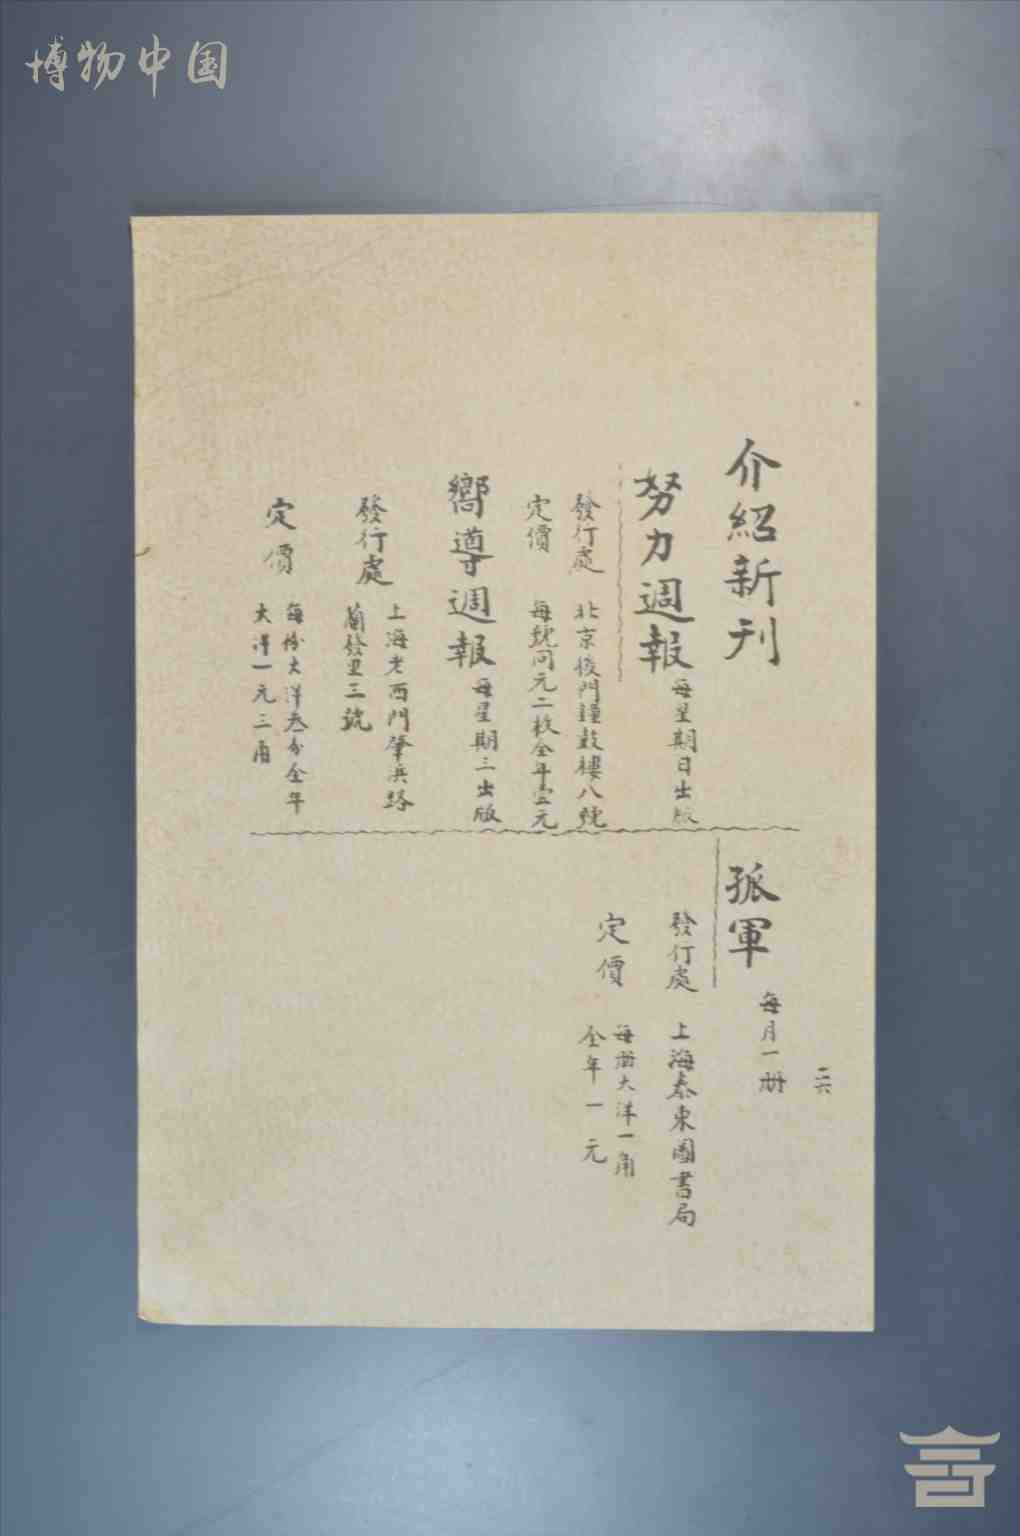 博物中国
介紹新刊
努力週報 每星期日出版
發行處 北京後門鐘鼓樓八號
定價 每號同元二枚全年壹元
嚮導週報 每星期三出版
發行處 上海老西門肇浜路
蘭發里三號
定價 每份大洋叁分全年
大洋一元三角
孤軍 每月一册
發行處 上海泰東圖書局
定價 每册大洋一角
全年一元
二六